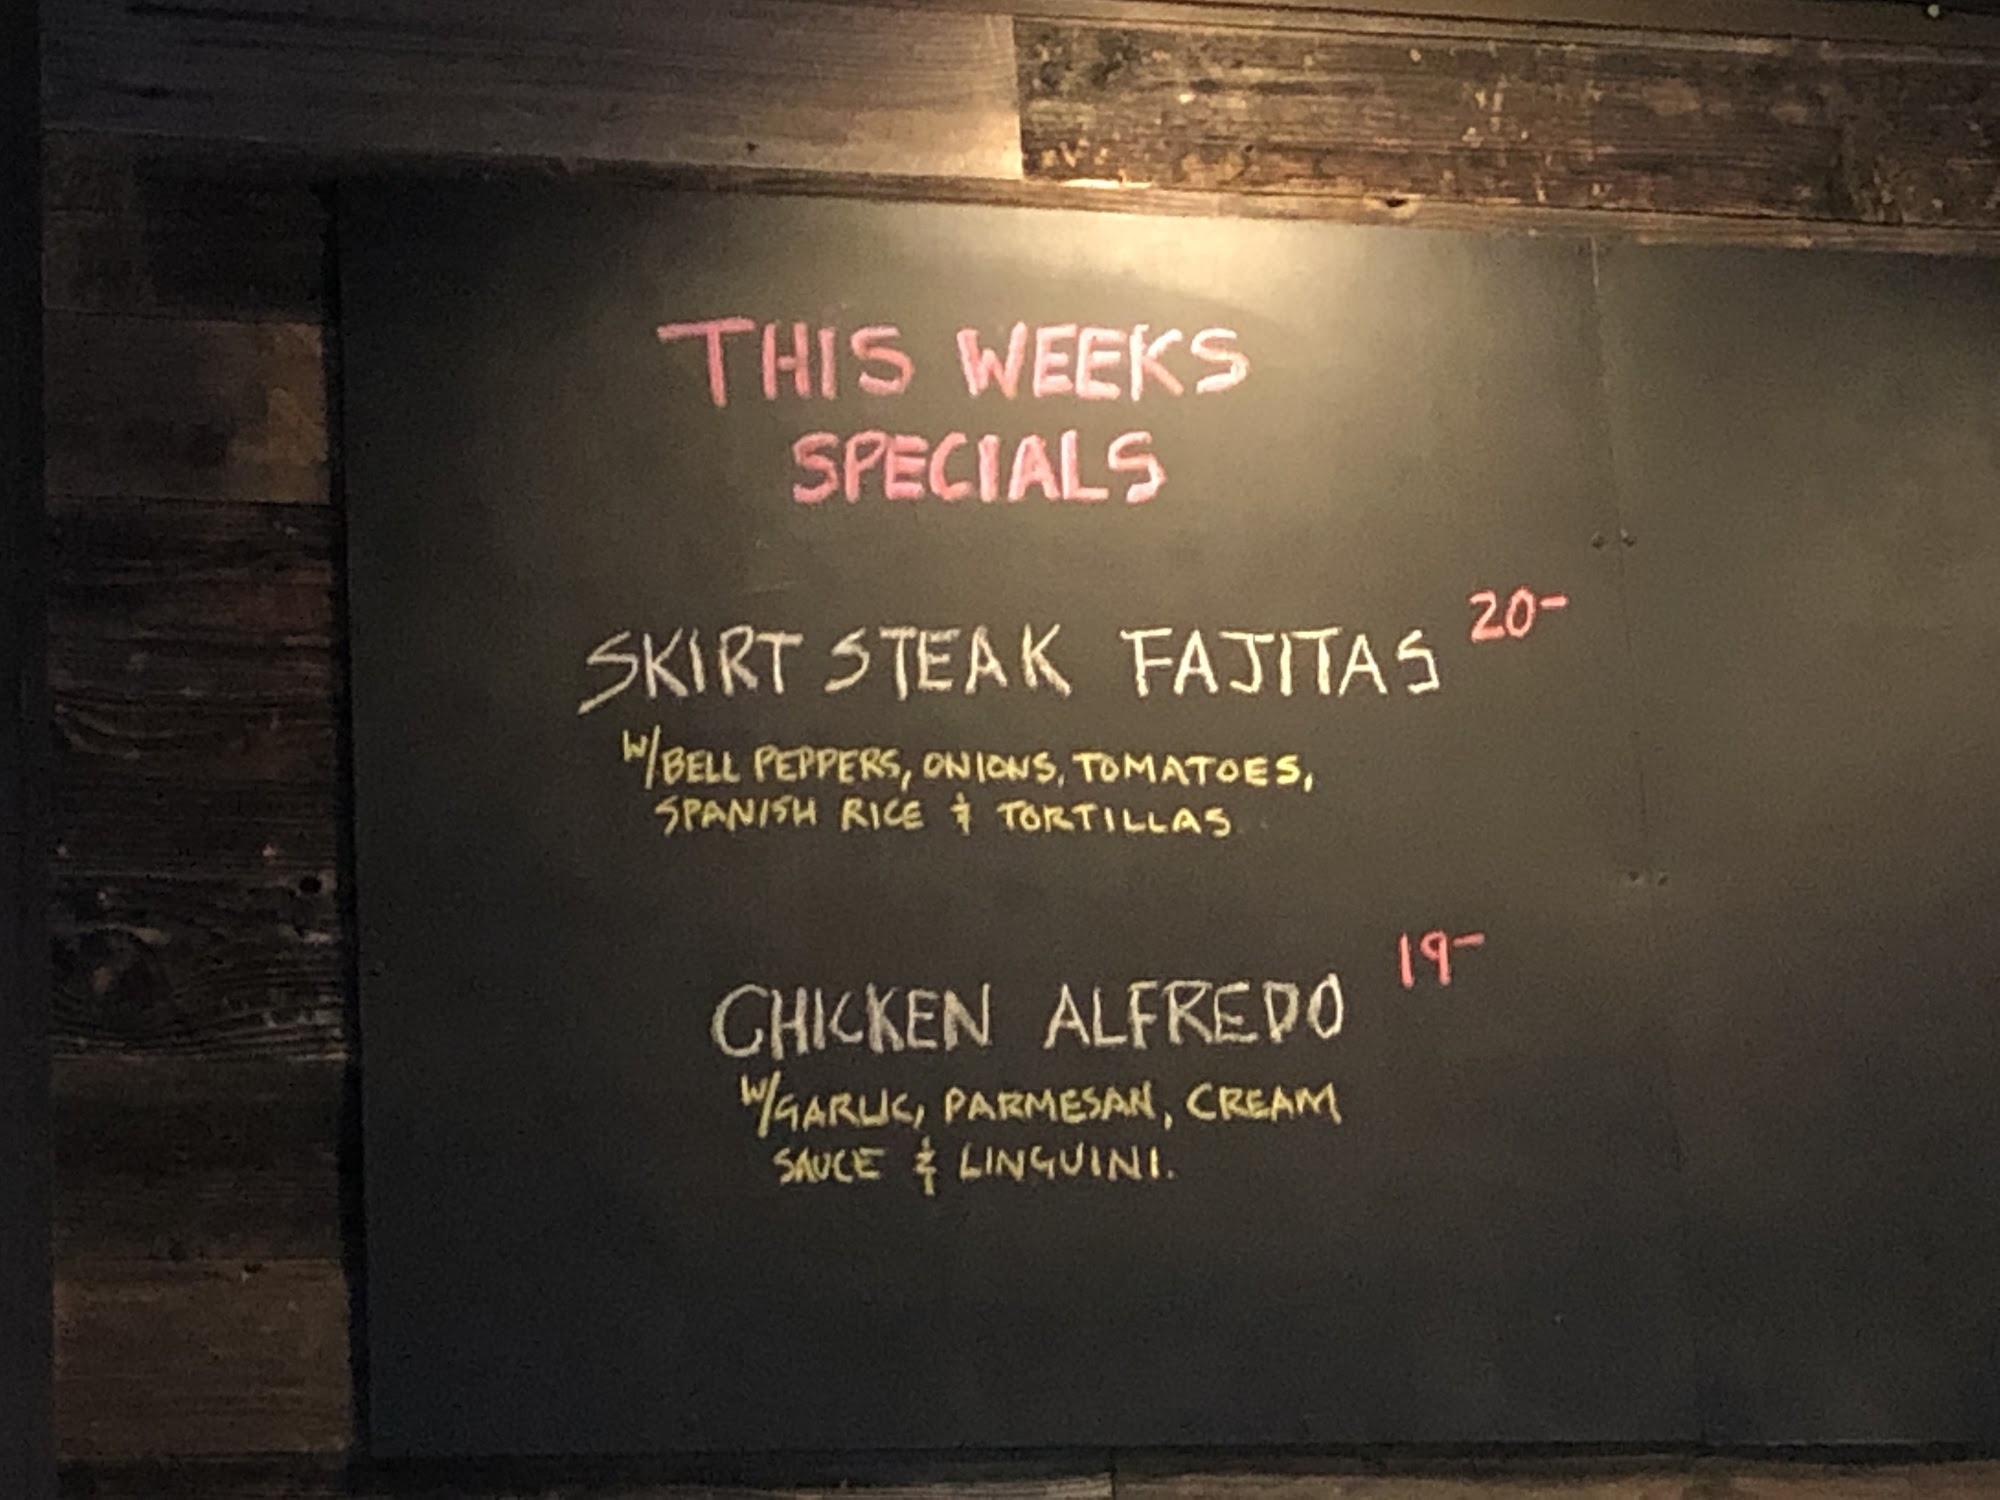 THIS WEEKS
SPECIALS
SKIRT STEAK FAJITAS 20-
W/BELL PEPPERS, ONIONS, TOMATOES,
SPANISH RICE & TORTILLAS
CHICKEN ALFREDO 19-
W/GARLIC, PARMESAN, CREAM
SAUCE & LINGUINI.